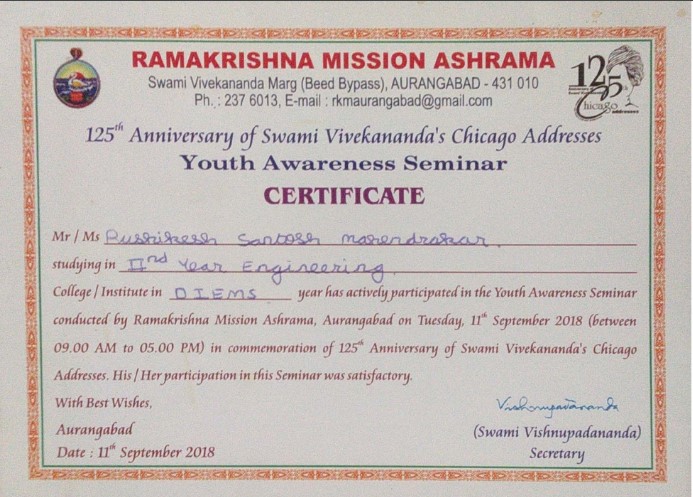 RAMAKRISHNA MISSION ASHRAMA
Swami Vivekananda Marg (Beed Bypass), AURANGABAD - 431 010
Ph. : 237 6013, E-mail : rkmaurangabad@gmail.com
125
Chicago
125th Anniversary of Swami Vivekananda's Chicago Addresses
Youth Awareness Seminar
CERTIFICATE
Mr / Ms Rushikesh Santosh Mahendrakar.
studying in IInd Year Engineering.
College / Institute in DIEMS year has actively participated in the Youth Awareness Seminar
conducted by Ramakrishna Mission Ashrama, Aurangabad on Tuesday, 11th September 2018 (between
09.00 AM to 05.00 PM) in commemoration of 125th Anniversary of Swami Vivekananda's Chicago
Addresses. His / Her participation in this Seminar was satisfactory.
With Best Wishes,
Vishnupadananda
Aurangabad
(Swami Vishnupadananda)
Date : 11th September 2018
Secretary